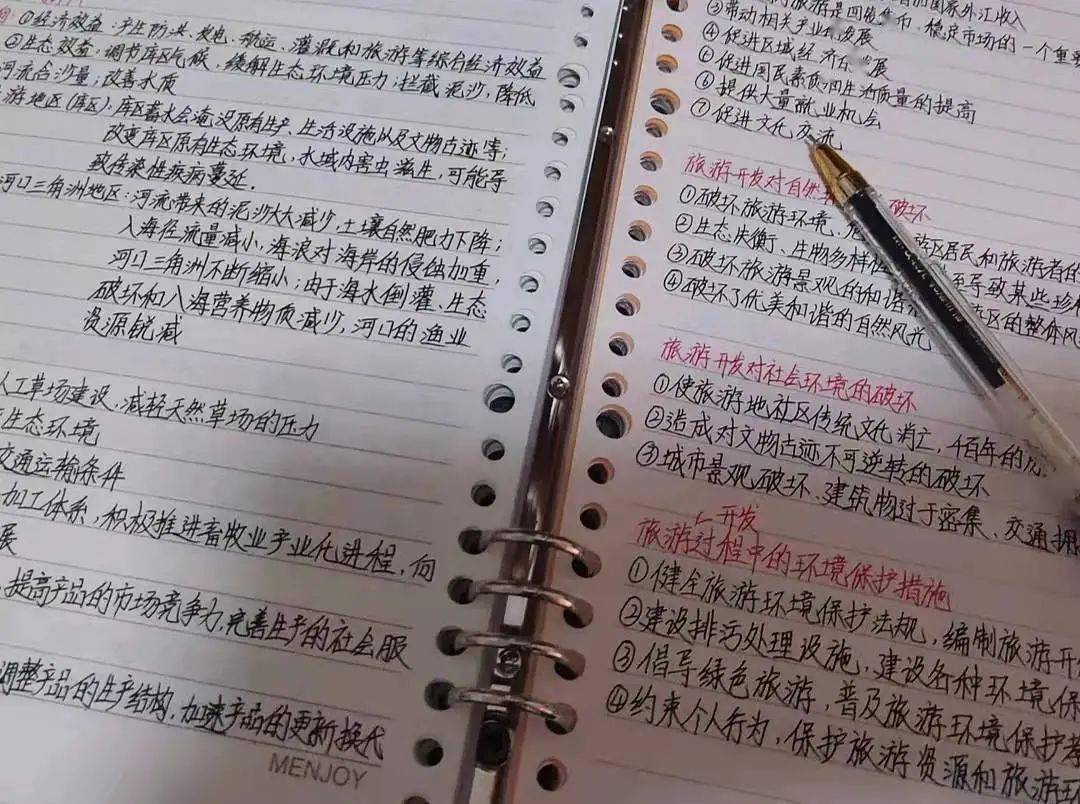 ①经济效益:产生防洪、发电、航运、灌溉和旅游等综合经济效益
②生态效益:调节库区气候,缓解生态环境压力,拦截泥沙,降低
河流含沙量,改善水质
游地区(库区):库区蓄水会淹没原有生产、生活设施以及文物古迹等;
改变库区原有生态环境,水域内害虫滋生,可能导
致传染性疾病蔓延.
河口三角洲地区:河流带来的泥沙大大减少,土壤自然肥力下降;
入海径流量减小,海浪对海岸的侵蚀加重,
河口三角洲不断缩小;由于海水倒灌、生态
破坏和入海营养物质减少,河口的渔业
资源锐减
人工草场建设,减轻天然草场的压力
生态环境
交通运输条件
加工体系,积极推进畜牧业产业化进程,向
展
提高产品的市场竞争力,完善生产的社会服
调整产品的生产结构,加速产品的更新换代
MENJOY
国家外汇收入
旅游是回笼货币、稳定市场的一个重要
③带动相关产业的发展
④促进区域经济的发展
⑤促进国民素质和生活质量的提高
⑥提供大量就业机会
⑦促进文化交流
旅游开发对自然 破坏
①破坏旅游环境, 游区居民和旅游者的
②生态失衡、生物多样性 至导致某些珍
③破坏旅游景观的和谐 区的整体风
④破坏了优美和谐的自然风光
旅游开发对社会环境的破坏
①使旅游地社区传统文化消亡,千百年的
②造成对文物古迹不可逆转的破坏
③城市景观破坏、建筑物过于密集、交通拥
旅游开发过程中的环境保护措施
①健全旅游环境保护法规,编制旅游开
②建设排污处理设施,建设各种环境保
③倡导绿色旅游,普及旅游环境保护
④约束个人行为,保护旅游资源和旅游环